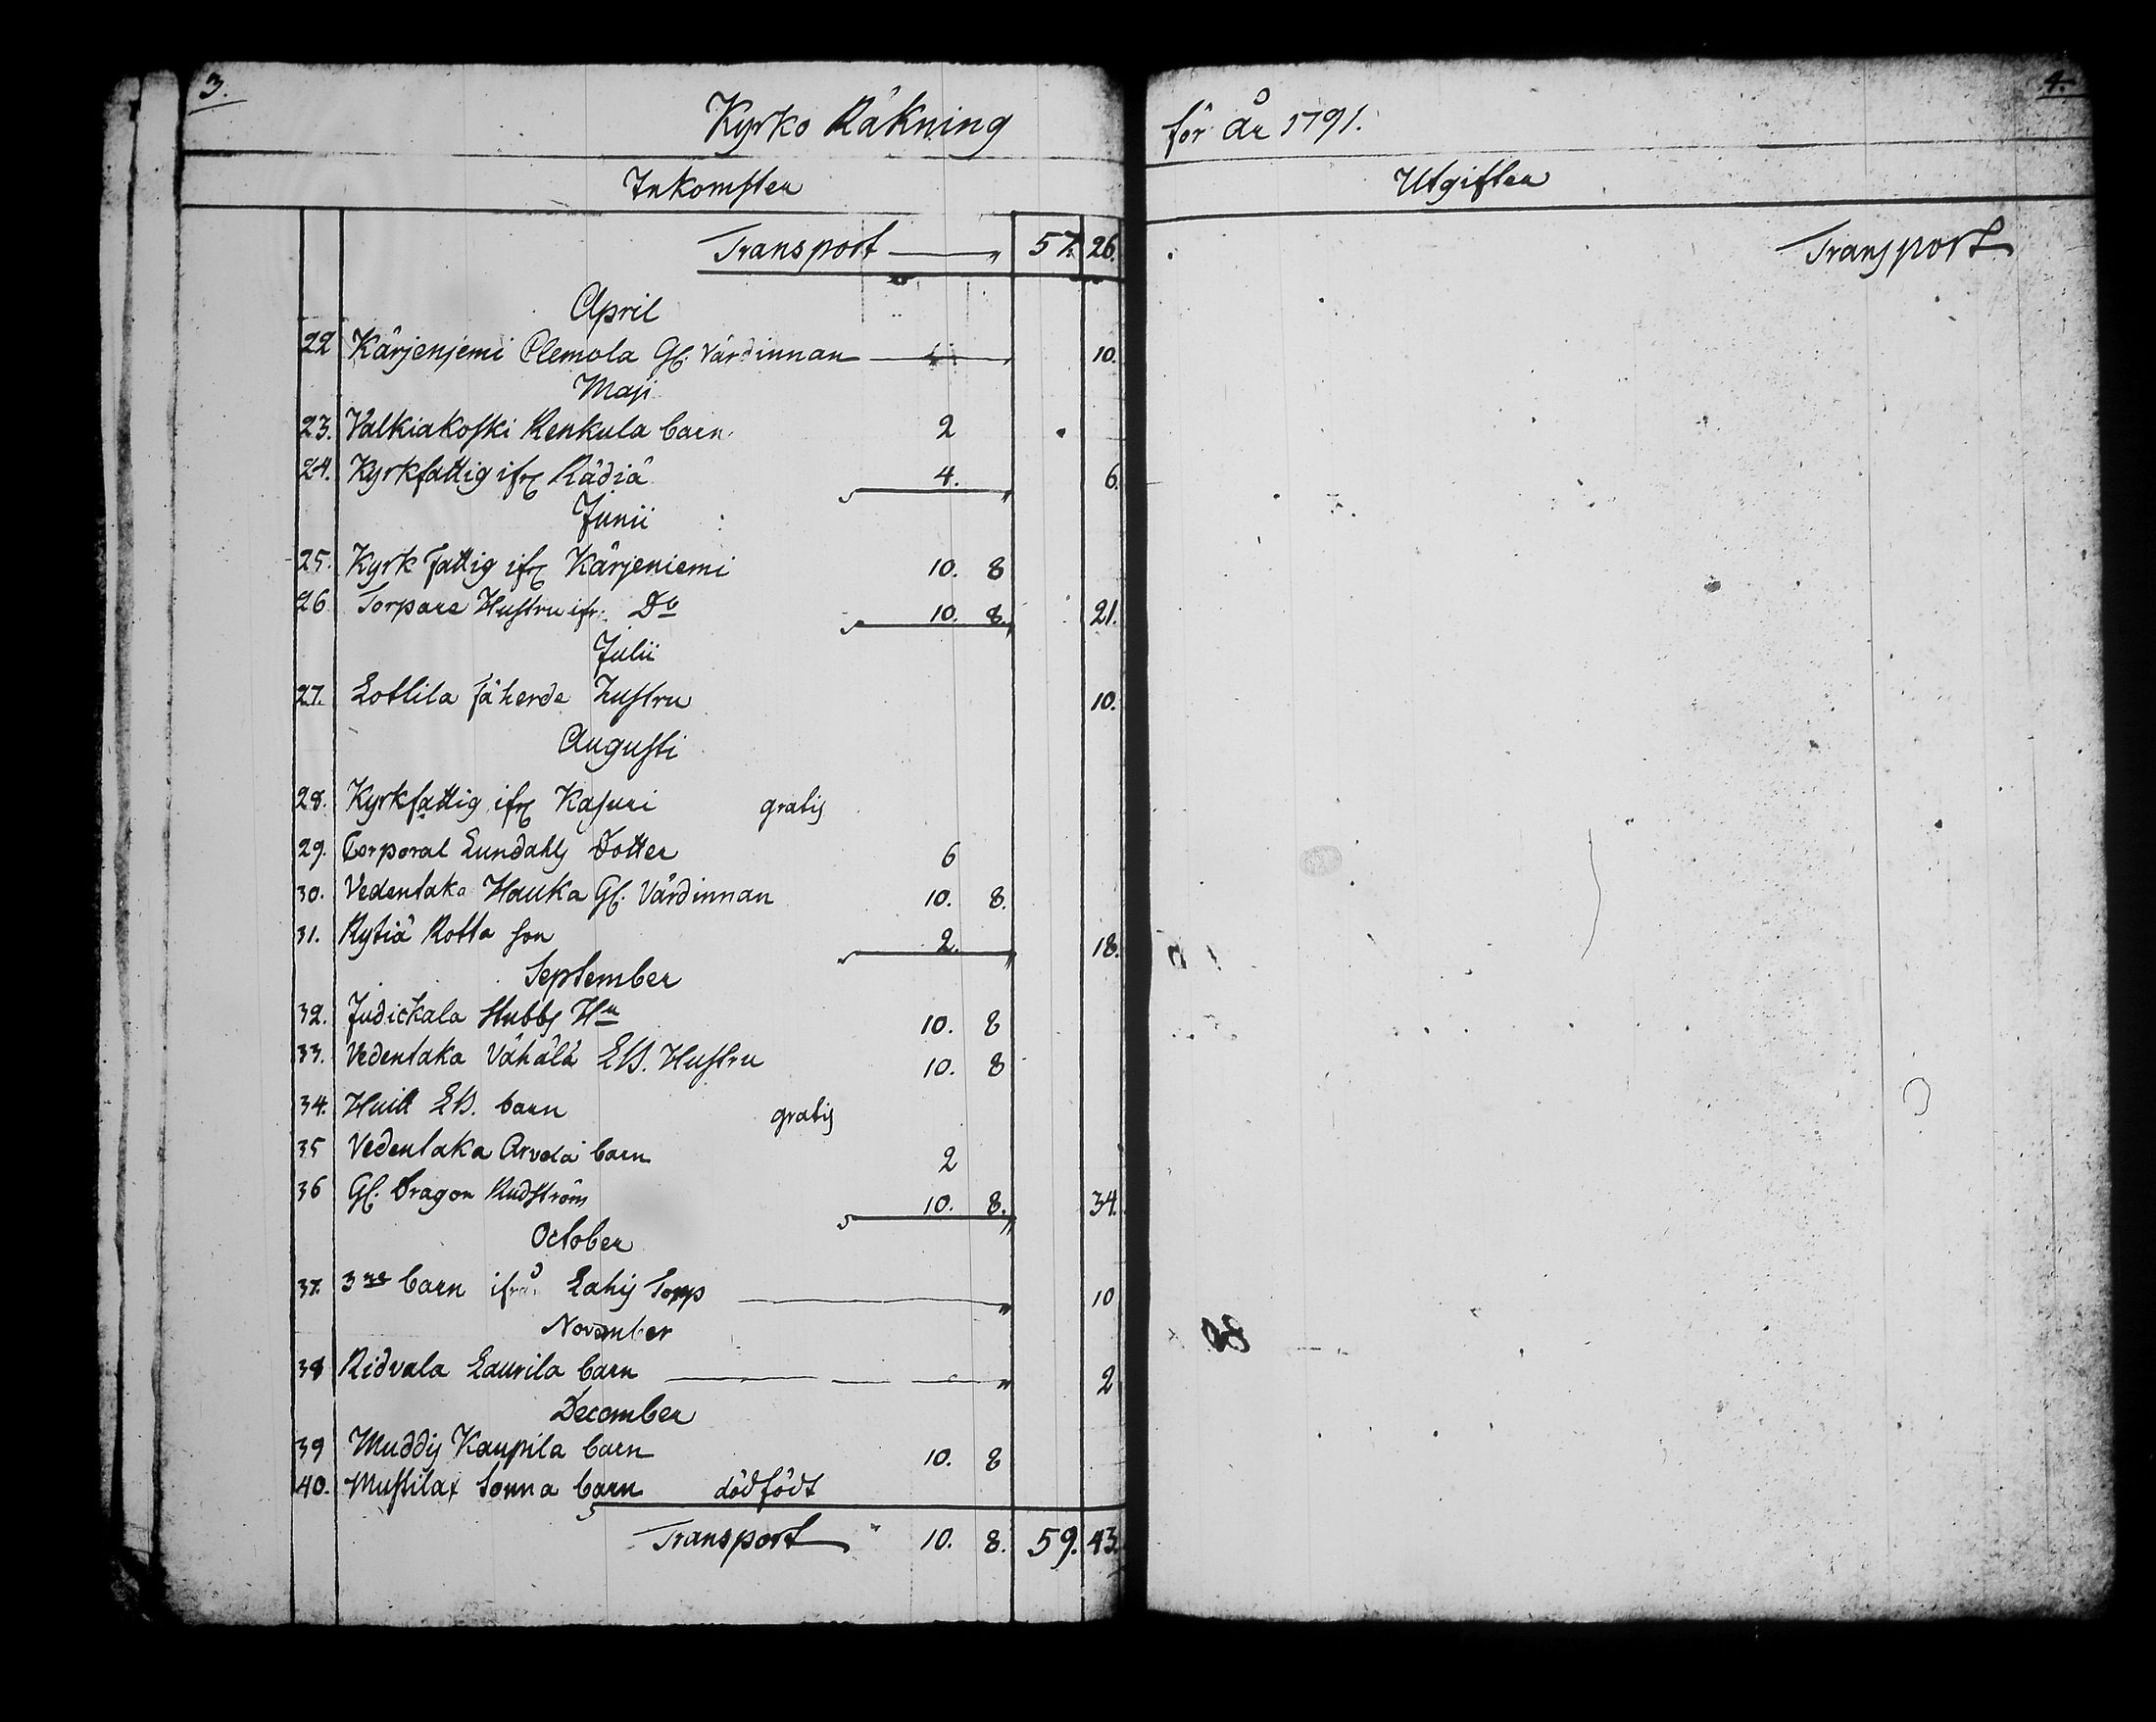 3.
Kyrko Räkning
Inkomster
Transport 57. 26.
April
22 Kärjenjemi Clemola Gl. Värdinnan 10.
Maji
23. Valkiakoski Renkula barn 2
24. Kyrkfattig ifr. Rädiä 4. 6.
Junii
25. Kyrk Fattig ifr. Kärjeniemi 10. 8
26 Torpare Hustru ifr. Do 10. 8. 21.
Julii
27. Lottila fäherde hustru 10.
Augusti
28. Kyrkfattig ifr. Kasuri gratis
29. Corporal Lundahls Dotter 6
30. Vedentaka Hauka Gl. Värdinnan 10. 8.
31. Rytiä Rotta son 2. 18.
September
32. Judickala Stubbs Hu 10. 8
33. Vedentaka Vähälä EB. Hustru 10. 8
34. barn gratis
35 Vedentaka Arvola barn 2
36 Gl. Dragon Rudström 10. 8. 34.
October
37. 3ne barn ifrå Lahis Torp 10
November
38 Ridvala Laurila barn 2
December
39 Muddis Kaupila barn 10. 8
40. barn dödfödt
Transport 10. 8. 59. 43.
4.
för år 1791.
Utgifter
Transport